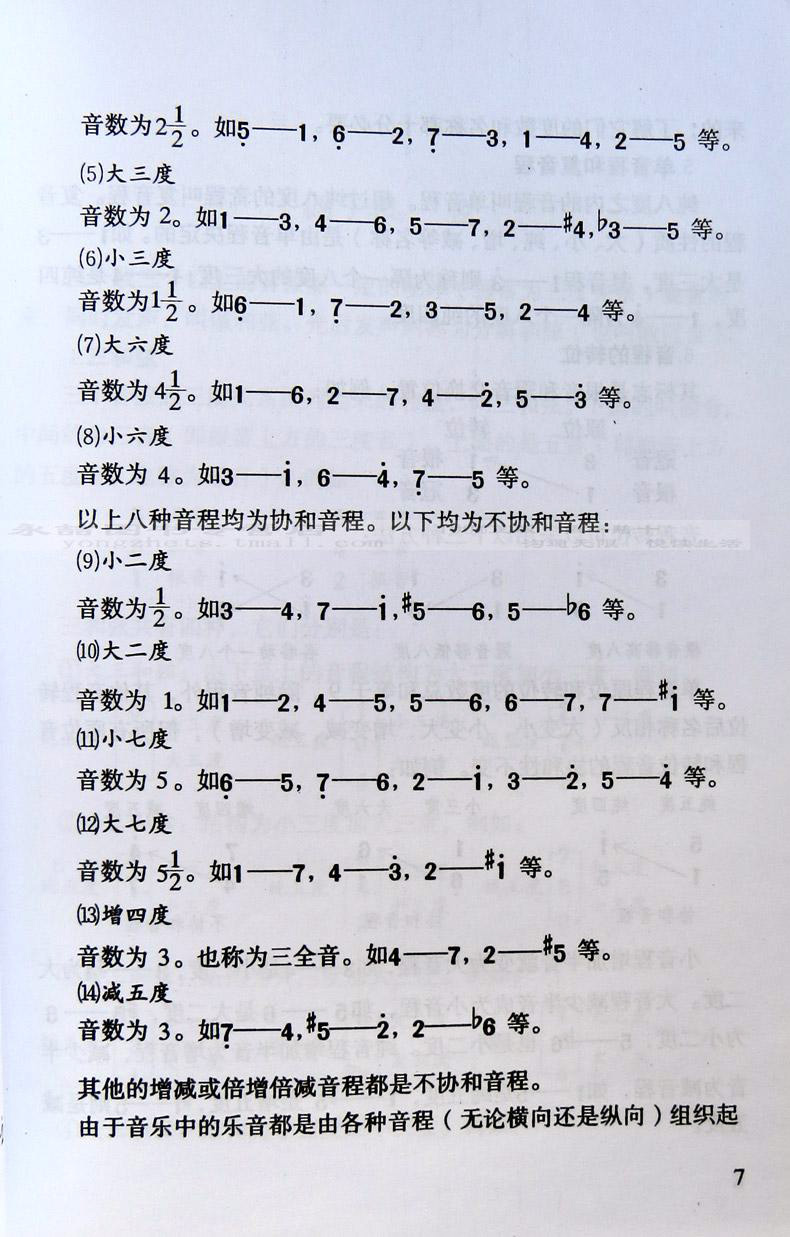 音数为2½。如5̣——1, 6̣——2, 7̣——3, 1——4, 2——5 等。
⑸大三度
音数为 2。如1——3, 4——6, 5——7, 2——♯4, ♭3——5 等。
⑹小三度
音数为1½。如6̣——1, 7̣——2, 3——5, 2——4 等。
⑺大六度
音数为 4½。如1——6, 2——7, 4——2̇, 5——3̇ 等。
⑻小六度
音数为 4。如3——1̇, 6——4̇, 7̣——5 等。
以上八种音程均为协和音程。以下均为不协和音程:
⑼小二度
音数为½。如3——4, 7——1̇, ♯5——6, 5——♭6 等。
⑽大二度
音数为 1。如1——2, 4——5, 5——6, 6——7, 7——♯1̇ 等。
⑾小七度
音数为 5。如6̣——5, 7̣——6, 2——1̇, 3——2̇, 5——4̇ 等。
⑿大七度
音数为 5½。如1——7, 4——3̇, 2——♯1̇ 等。
⒀增四度
音数为 3。也称为三全音。如4——7, 2——♯5 等。
⒁减五度
音数为 3。如7̣——4, ♯5——2̇, 2——♭6 等。
其他的增减或倍增倍减音程都是不协和音程。
由于音乐中的乐音都是由各种音程 ( 无论横向还是纵向 ) 组织起
7